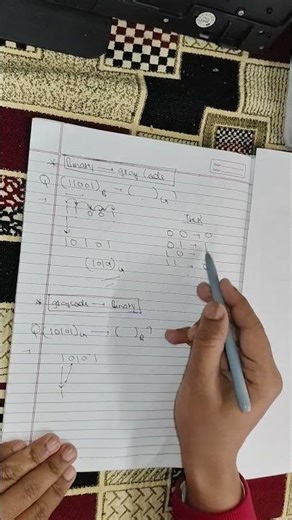 * Binary → gray code
Q (11001)B → ( )G
→ 1 1 0 0 1
1 0 1 0 1
(10101)G
Trick
0 0 → 0
0 1 → 1
1 0 →
1 1 →
* graycode → Binary
Q (10101)G → ( )B ?
→ 1 0 1 0 1
1